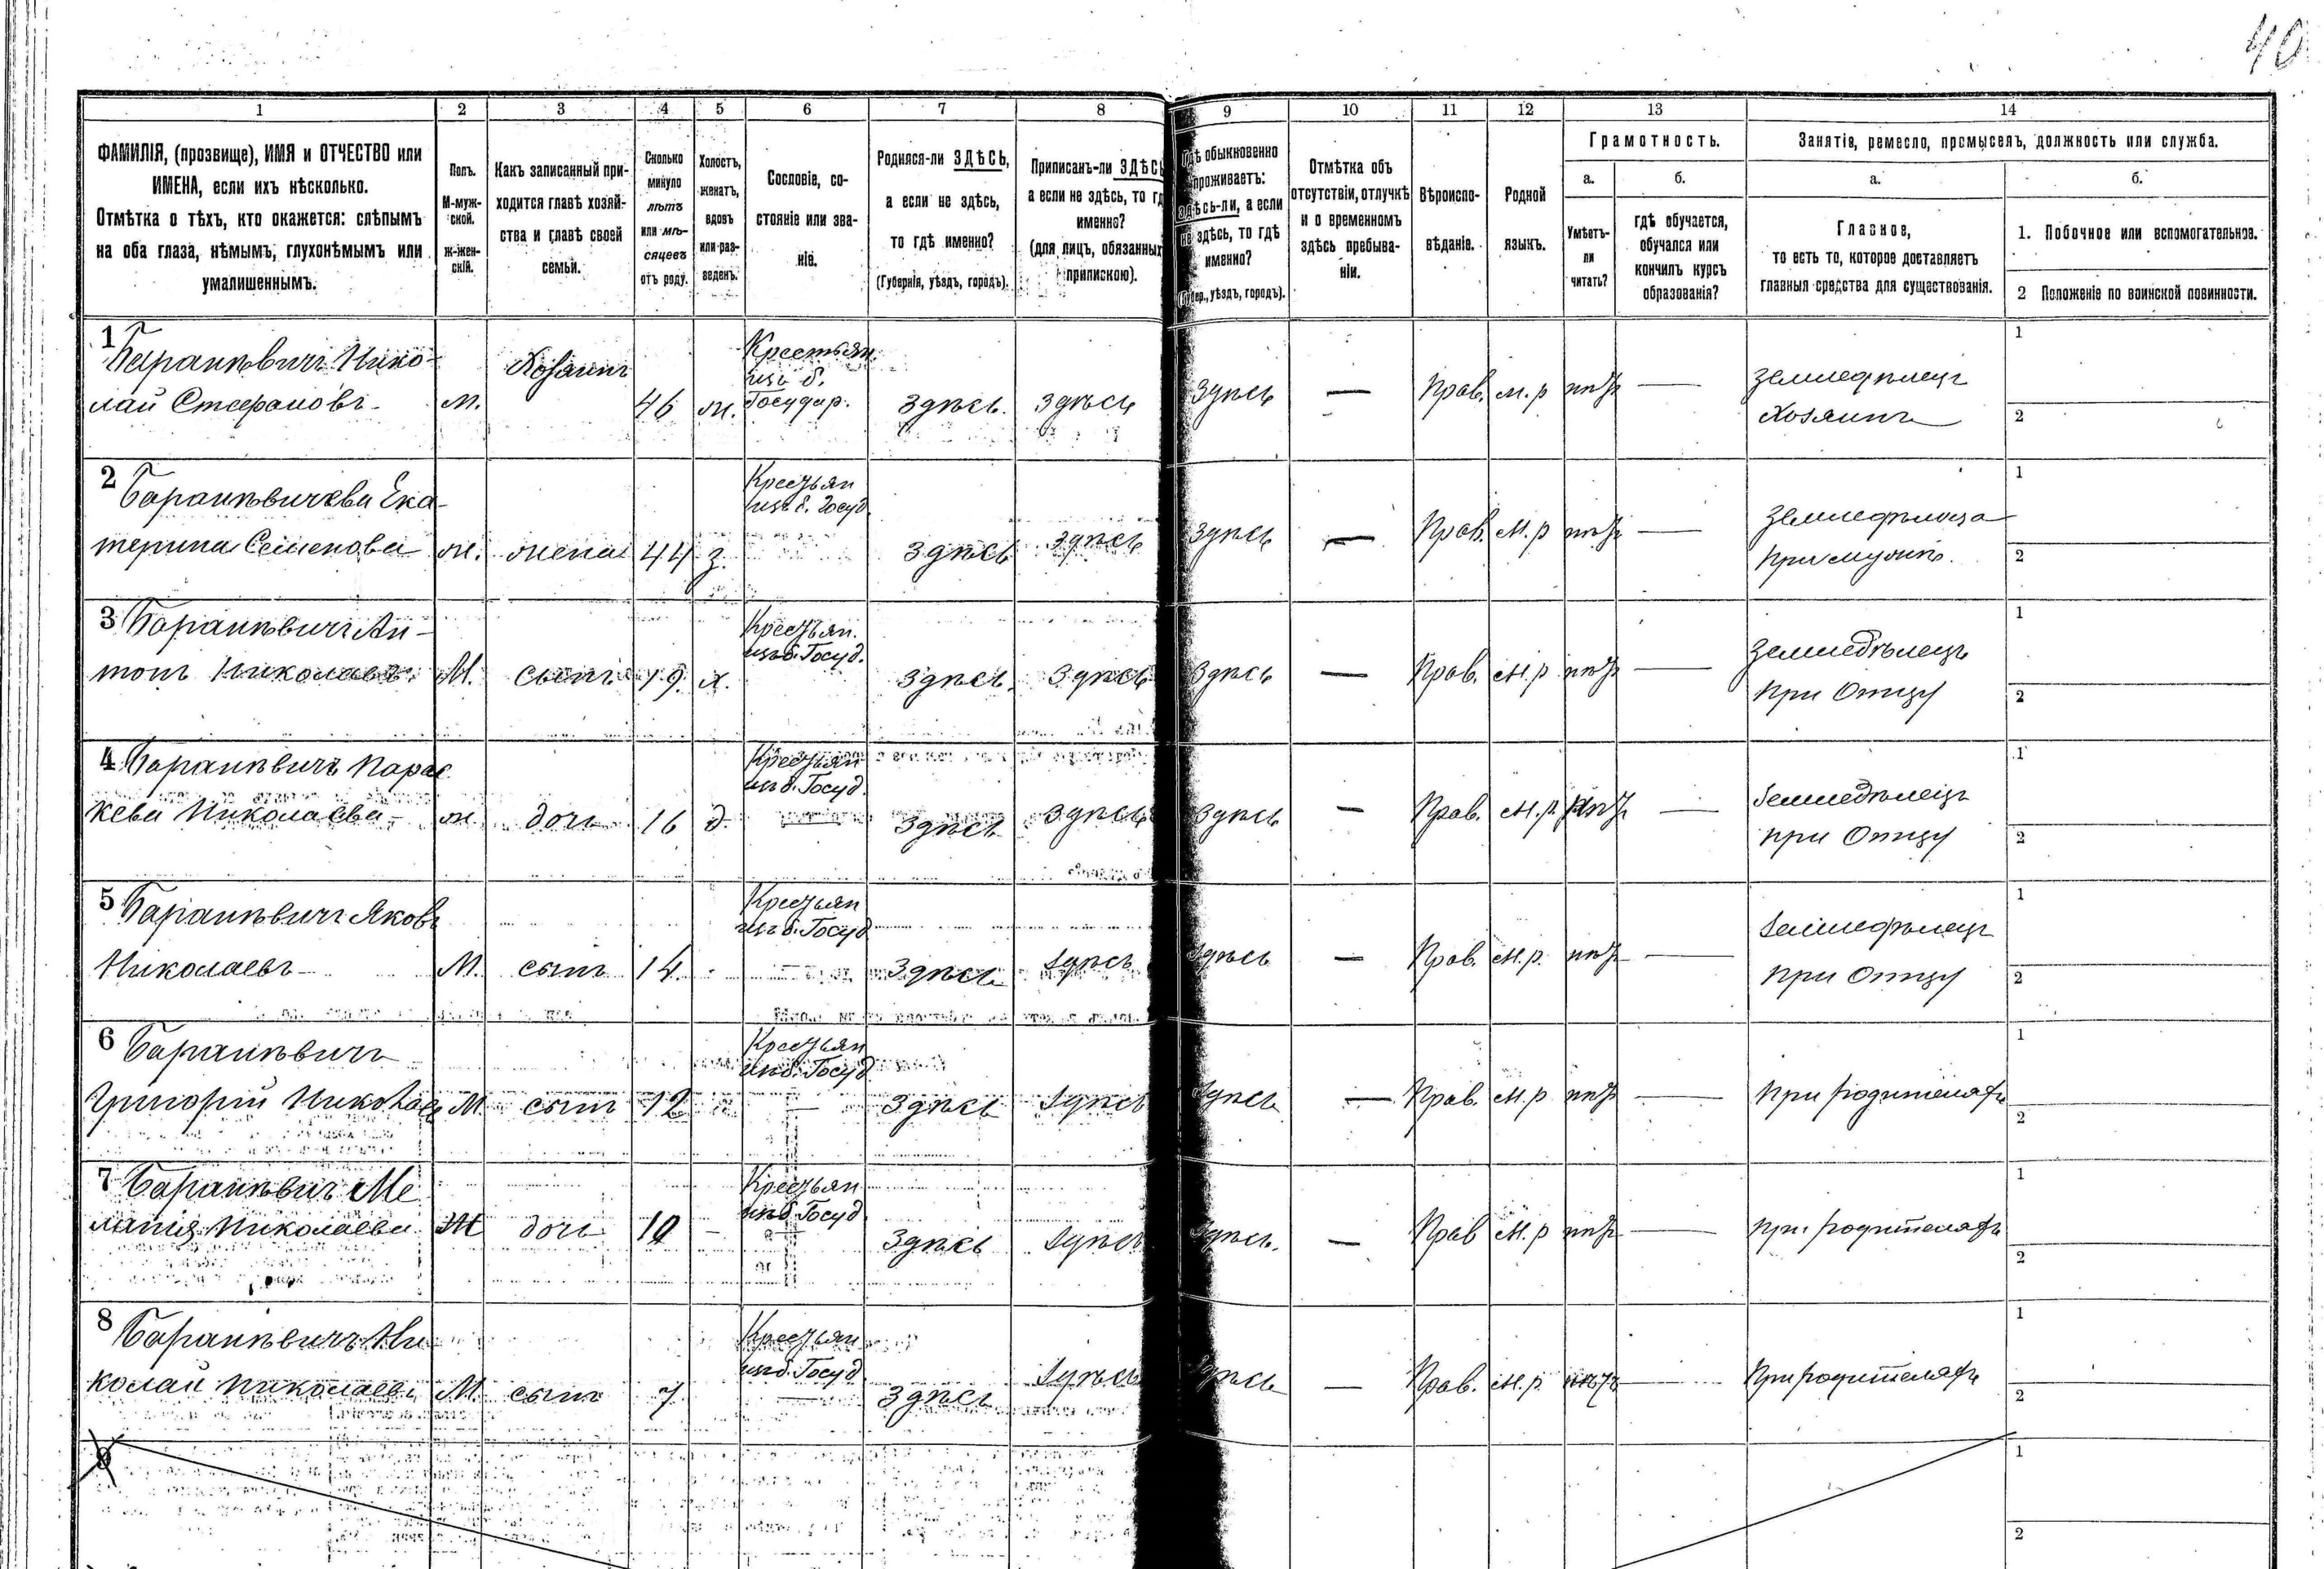 40
1 2 3 4 5 6 7 8 9 10 11 12 13 14
ФАМИЛІЯ, (прозвище), ИМЯ и ОТЧЕСТВО или
ИМЕНА, если ихъ нѣсколько.
Отмѣтка о тѣхъ, кто окажется: слѣпымъ
на оба глаза, нѣмымъ, глухонѣмымъ или
умалишеннымъ.
Полъ.
М-муж-
ской.
Ж-жен-
скій.
Какъ записанный при-
ходится главѣ хозяй-
ства и главѣ своей
семьи.
Сколько
минуло
лѣтъ
или мѣ-
сяцевъ
отъ роду.
Холостъ,
женатъ,
вдовъ
или раз-
веденъ.
Сословіе, со-
стояніе или зва-
ніе.
Родился-ли ЗДѢСЬ,
а если не здѣсь,
то гдѣ именно?
(Губернія, уѣздъ, городъ).
Приписанъ-ли ЗДѢСЬ
а если не здѣсь, то гд
именно?
(для лицъ, обязанных
припискою).
Гдѣ обыкновенно
проживаетъ:
здѣсь-ли, а если
не здѣсь, то гдѣ
именно?
(Губер., уѣздъ, городъ).
Отмѣтка объ
отсутствіи, отлучкѣ
и о временномъ
здѣсь пребыва-
ніи.
Вѣроиспо-
вѣданіе.
Родной
языкъ.
Грамотность.
а.
Умѣетъ-
ли
читать?
б.
гдѣ обучается,
обучался или
кончилъ курсъ
образованія?
Занятіе, ремесло, промыселъ, должность или служба.
а.
Главное,
то есть то, которое доставляетъ
главныя средства для существованія.
б.
1. Побочное или вспомогательное.
2 Положеніе по воинской повинности.
1 Баранѣвичъ Нико-
лай Стефановъ М. Хозяинъ 46 ж. Крестьян.
изъ б.
Государ. здѣсь здѣсь здѣсь — Прав. м.р нѣтъ — земледѣлецъ
хозяинъ 1
2
2 Баранѣвичева Ека-
терина Семенова ж. жена 44 з. Крестьян
изъ б. Госуд здѣсь здѣсь здѣсь — Прав. М.р нѣтъ —
При мужѣ. 1
2
3 Баранѣвичъ Ан-
тонъ Николаевъ М. сынъ 19 х. Крестьян.
изъ б. Госуд. здѣсь здѣсь здѣсь — Прав. М.р нѣтъ — земледѣлецъ
при Отцу 1
2
4 Баранѣвичъ Парас
кева Николаева ж дочь 16 д. Крестьян
изъ б. Госуд. здѣсь здѣсь здѣсь — Прав. М.р. нѣтъ — земледѣлецъ
при Отцу 1
2
5 Баранѣвичъ Яковъ
Николаевъ М. сынъ 14 Крестьян
изъ б. Госуд здѣсь здѣсь здѣсь — Прав. М.р. нѣтъ — земледѣлецъ
при Отцу 1
2
6 Баранѣвичъ
Григорій Николаев М сынъ 12 Крестьян
изъ б. Госуд здѣсь здѣсь здѣсь — Прав. М.р нѣтъ — при родителяхъ 1
2
7 Баранѣвичъ Ме
ланія Николаева Ж дочь 10 — Крестьян
изъ б Госуд здѣсь здѣсь здѣсь. — Прав М.р нѣтъ — при родителяхъ 1
2
8 Баранѣвичъ Ни
колай Николаевъ М. сынъ 7 Крестьян
изъ б. Госуд здѣсь здѣсь здѣсь — Прав. М.р. нѣтъ — При родителяхъ 1
2
1
2